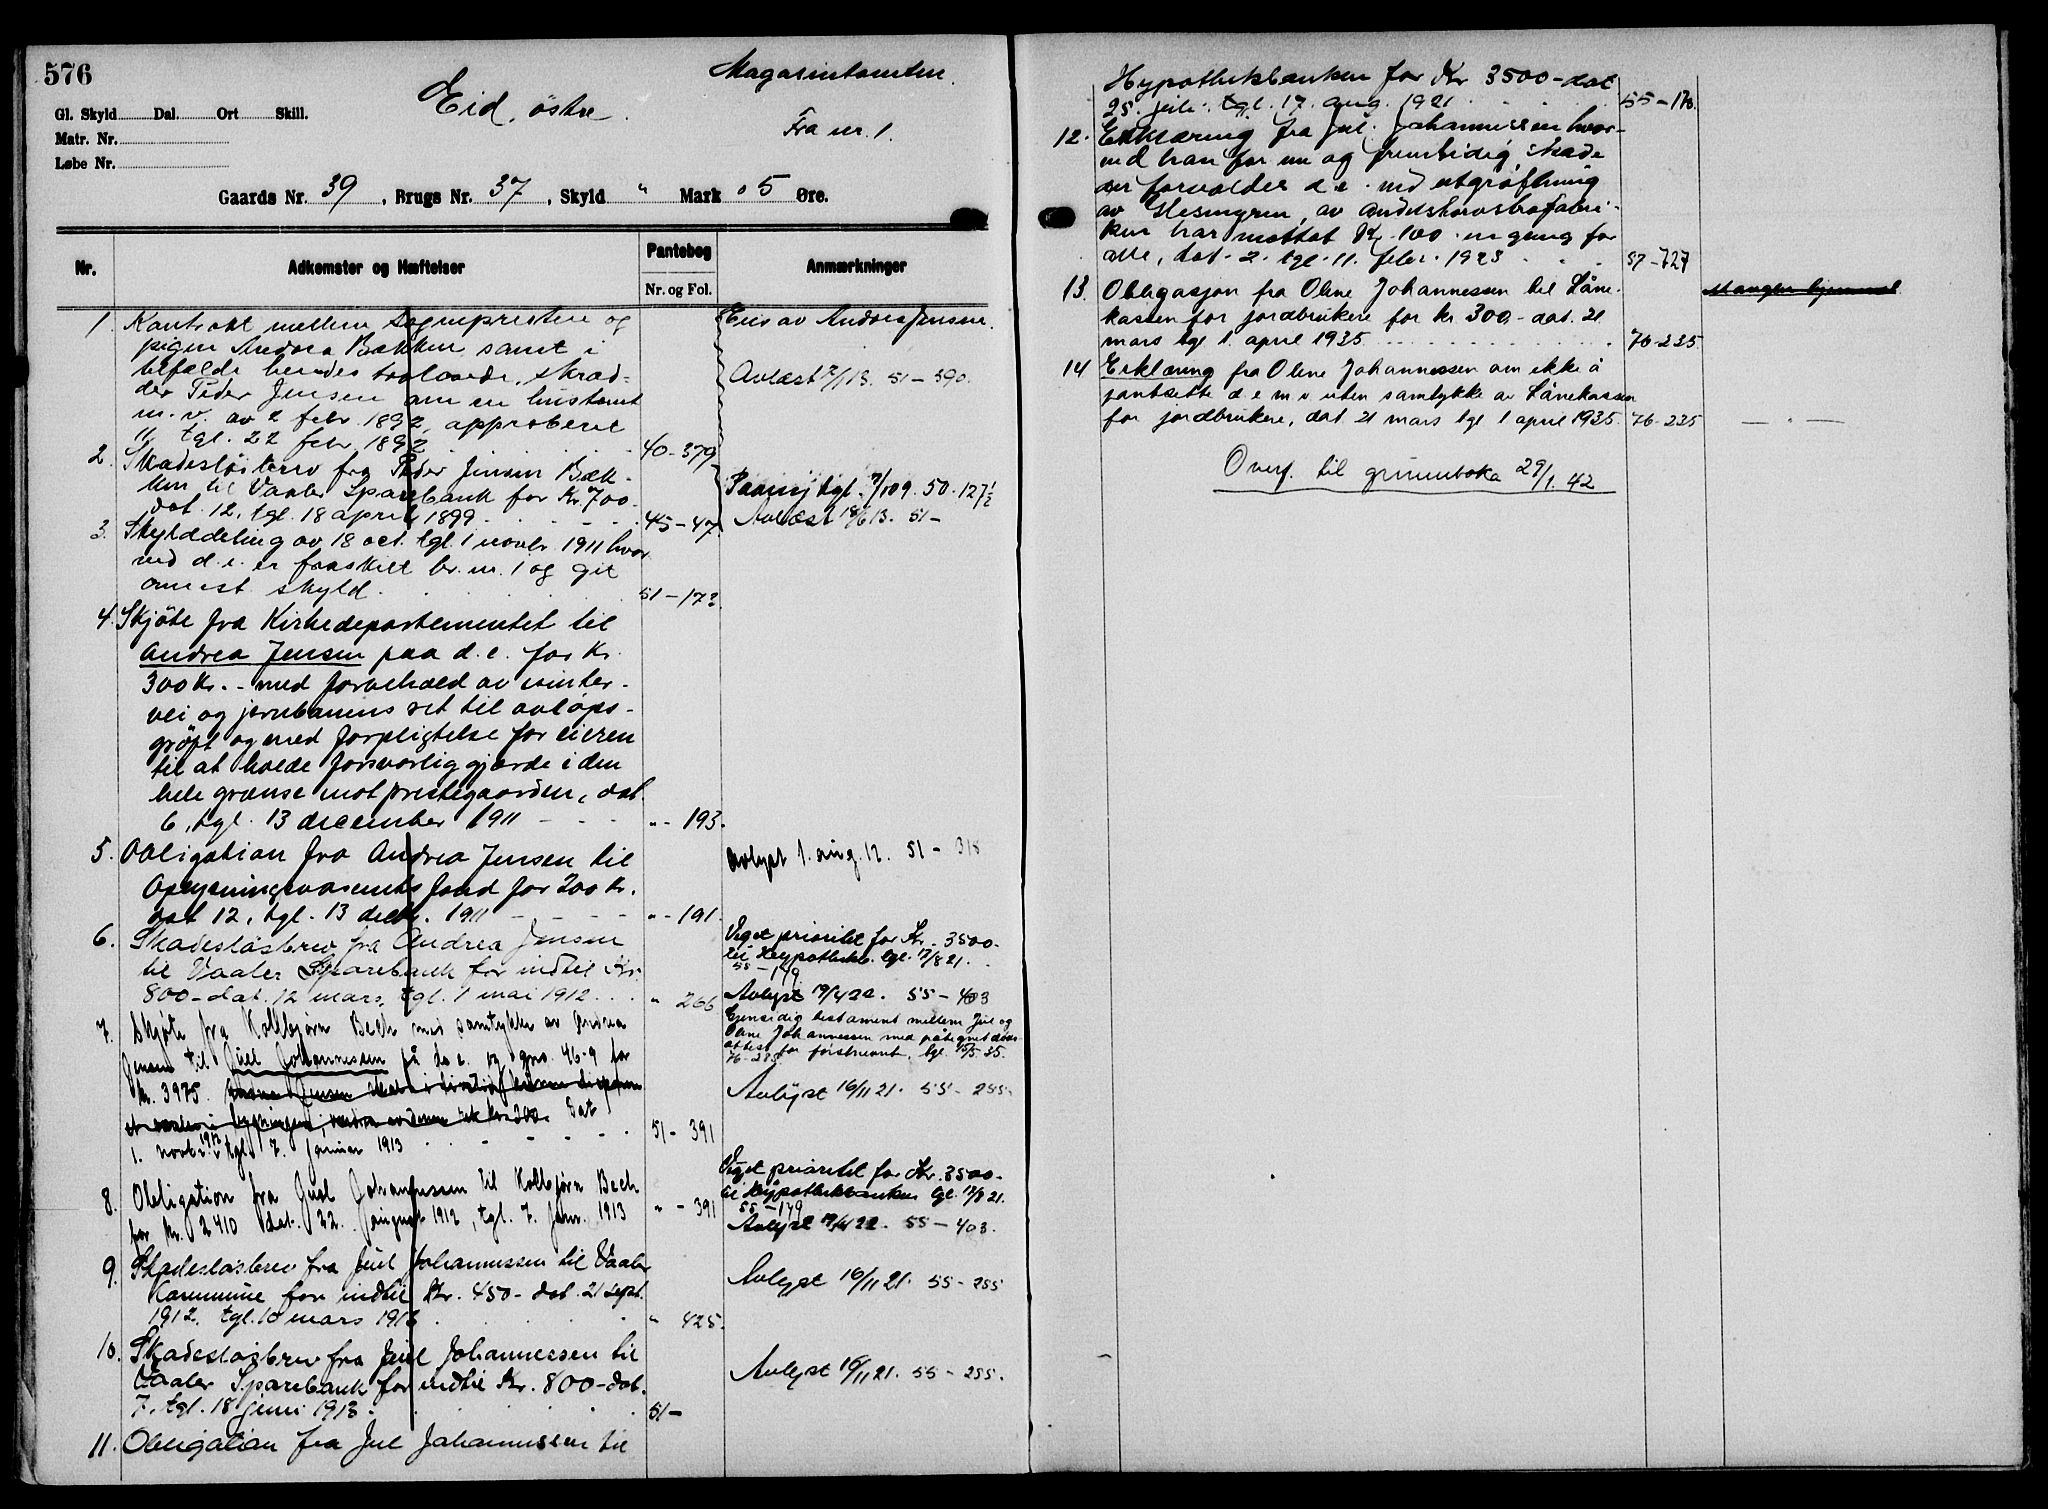 576
Eid, östre.
Magasintomten.
Fra nr. 1.
Gl. Skyld Dal. Ort Skill.
Matr. Nr.
Løbe Nr.
Gaards Nr. 39, Brugs Nr. 37, Skyld " Mark 05 Øre.
Nr.
Adkomster og Hæftelser
Pantebog
Nr. og Fol.
Anmærkninger
1 Kontrakt mellem Sognepresten og
pigen Andrea Bækken samt i
tilfælde hendes trolovede, skræd-
der Peder Jensen om en hustomt
m. v. av 2 febr 1892, approberet
11, tgl. 22 febr 1892 40-379
Eies av Andrea Jensen.
Avlæst 7/1 13. 51-390.
2. Skadesløsbrev fra Peder Jensen Bæk-
ken til Vaaler Sparebank for Kr. 700-
dat. 12, tgl. 18 april 1899 45-47
tgl. 7/1 09. 50. 127 1/2
Avlæst 18/6 13. 51-
3. Skylddeling av 18 oct. tgl. 1 novbr. 1911 hvor
ved d. e. er fraskilt br. nr. 1 og git
anust skyld. 51-172
4. Skjöte fra Kirkedepartementet til
Andrea Jensen paa d. e. for Kr.
300 Kr. - med forbehold av vinter-
vei og jernbanens ret til avløps-
gröft og med forpligtelse for eieren
til at holde forsvarlig gjærde i den
hele grænse mot prestegaarden, dat.
6, tgl. 13 december 1911 - - - "- 193.
5. Obligation fra Andrea Jensen til
Oplysningsvæsenets fond for 200 Kr.
dat 12, tgl. 13 decbr. 1911 - - - - "- 191.
avlyst 1. aug. 12. 51 - 318
6. Skadeslösbrev fra Andrea Jensen
til Vaaler Sparebank for indtil Kr.
800- dat. 12 mars, tgl. 1 mai 1912 . . . " 266
Veget prioritet for Kr. 3500-
til Hypothekb. tgl. 17/8 21.
55-179
Avlyst 19/4 22. 55-403
7. Skjöte fra Kolbjørn Bech med samtykke av Andrea
Jensen til Juel Johannessen på d. e. og gno. 46-9 for
kr. 3975.
Dat
1. novbr. 1912 tgl. 7. Januar 1913 51- 391
Gjensidig testament mellem Jul og
Oline Johannessen med påtegnet døds-
attest for förstnevnt, tgl. 15/5-35.
76-285
Avlyst 16/11 21. 55-255.
8. Obligation fra Juel Johannessen til Kolbjørn Bech
for kr. 2410 dat. 22. august 1912, tgl. 7. Jan. 1913 "- 391
Veget prioritet for Kr. 3500-
til Hypothekbanken tgl. 17/8 21.
55-179
Avlyst 19/4 22. 55-403.
9. Skadesløsbrev fra Juel Johannessen til Vaaler
Kommune for indtil Kr. 450- dat. 21 sept.
1912, tgl. 10 mars 1913 " 425.
Avlyst 16/11 21. 55-255
10. Skadesløsbrev fra Juel Johannessen til
Vaaler Sparebank for indtil Kr. 800- dat.
7, tgl. 18 juni 1913. 51-
Avlyst 16/11 21. 55-255.
11. Obligation fra Jul Johannessen til
Hypothekbanken for Kr 3500- dat
25. juli. tgl. 17. aug. 1921 55-178.
12. Erklæring fra Jul. Johannessen hvor-
ved han for nu og fremtidig skade
der forvoldes d. e. ved utgröftning
av , av andelstorvströfabri-
ken har mottat Kr. 100 en gang for
alle, dat. 2. tgl. 11. febr. 1923 57-727
13. Obligasjon fra Oline Johannessen til Låne-
kassen for jordbrukere for kr 300,- dat. 21
mars tgl 1. april 1935 76-235.
Mangler hjemmel
14 Erklæring fra Oline Johannessen om ikke å
pantsette d e m v uten samtykke av Lånekassen
for jordbrukere, dat 21 mars tgl 1 april 1935. 76-235
— " —
Overf. til grunnboka 29/1. 42